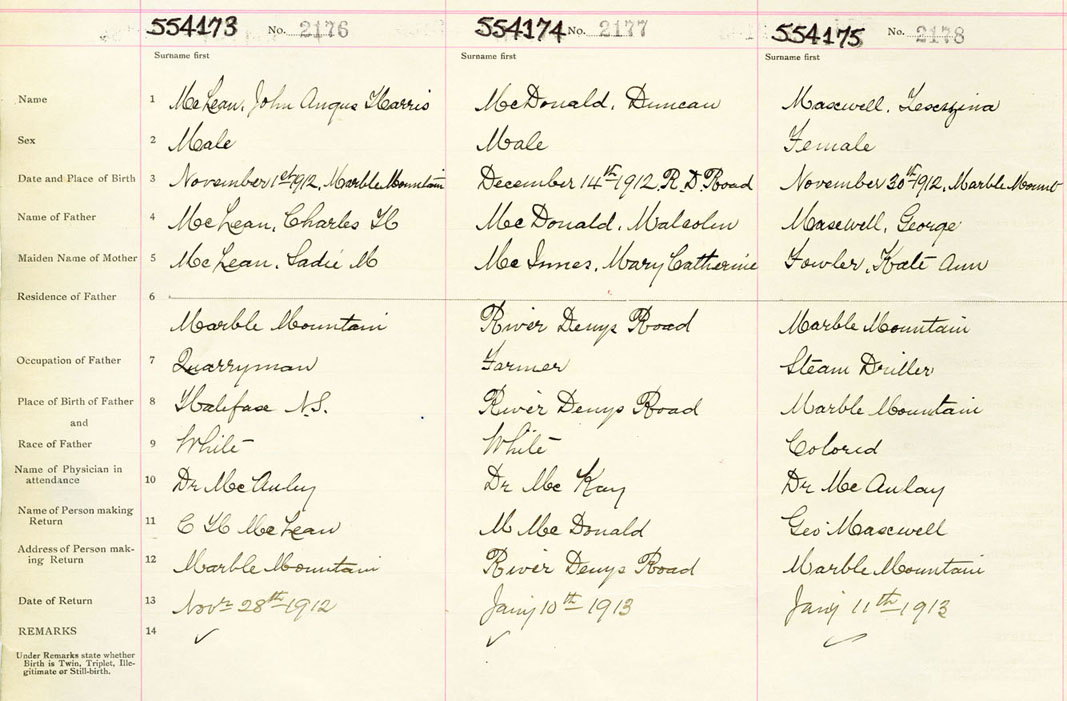 554173 No. 2176 554174 No. 2177 554175 No. 2178
Surname first Surname first Surname first
Name 1 McLean, John Angus Harris McDonald, Duncan Maxwell,
Sex 2 Male Male Female
Date and Place of Birth 3 November 1st 1912, Marble Mountain December 14th 1912, R. D. Road November 30th 1912, Marble Mount
Name of Father 4 McLean, Charles H McDonald, Malcolm Maxwell, George
Maiden Name of Mother 5 McLean, Sadie M McInnes, Mary Catherine Fowler, Kate Ann
Residence of Father 6
Marble Mountain River Denys Road Marble Mountain
Occupation of Father 7 Quarryman Farmer Steam Driller
Place of Birth of Father 8 Halifax N.S. River Denys Road Marble Mountain
and
Race of Father 9 White White Colored
Name of Physician in
attendance 10 Dr McAuley Dr McKay Dr McAulay
Name of Person making
Return 11 C H McLean M McDonald Geo Maxwell
Address of Person mak-
ing Return 12 Marble Mountain River Denys Road Marble Mountain
Date of Return 13 Novr 28th 1912 Jany 10th 1913 Jany 11th 1913
REMARKS 14
Under Remarks state whether
Birth is Twin, Triplet, Ille-
gitimate or Still-birth.